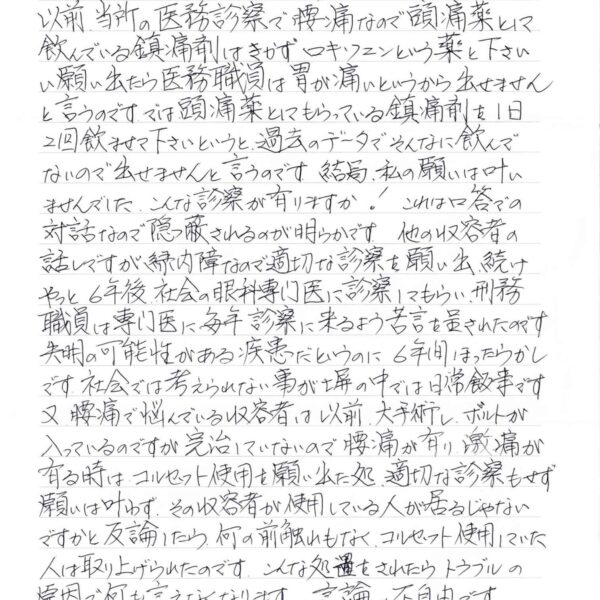 以前、当所の医務診察で腰痛なので頭痛薬として
飲んでいる鎮痛剤はきかずロキソフニンという薬と下さ
い願い出たら医務職員は胃が痛いというから出せません
と言うのです では頭痛薬としてもらっている鎮痛剤を1日
2回飲ませて下さいというと、過去のデータでそんなに飲んで
ないので出せませんと言うのです 結局、私の願いは叶い
ませんでした、こんな診察が有りますか! これは口答での
対話なので隠っ蔽されるのが明らかです 他の収容者の
話しですが、緑内障なので適切な診察を願い出、続け
やっと6年後、社会の眼科専門医に診察してもらい、刑務
職員は専門医に毎年診察に来るよう苦言を呈されたのです
失明の可能性がある疾患だというのに6年間ほったらかし
です、社会では考えられない事が塀の中では日常飯事です
又、腰痛で悩んでいる収容者は以前、大手術し、ボルトが
入っているのですが完治していないので腰痛が有り、激痛が
有る時は、コルセット使用を願い出た処、適切な診察もせず
願いは叶わず、その収容者が使用している人が居るじゃない
ですかと反論したら、何の前触れもなく、コルセット使用していた
人は取り上げられたのです、こんな処遇をされたらトラブルの
原因で何も言えなくなります、言論、不自由です